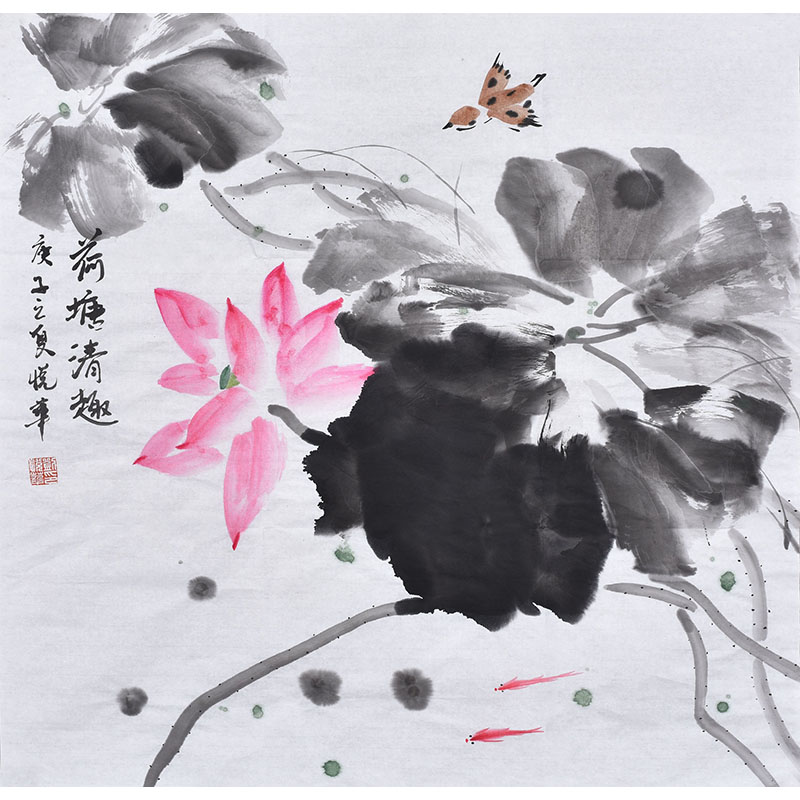 荷塘清趣
庚子之夏悦华